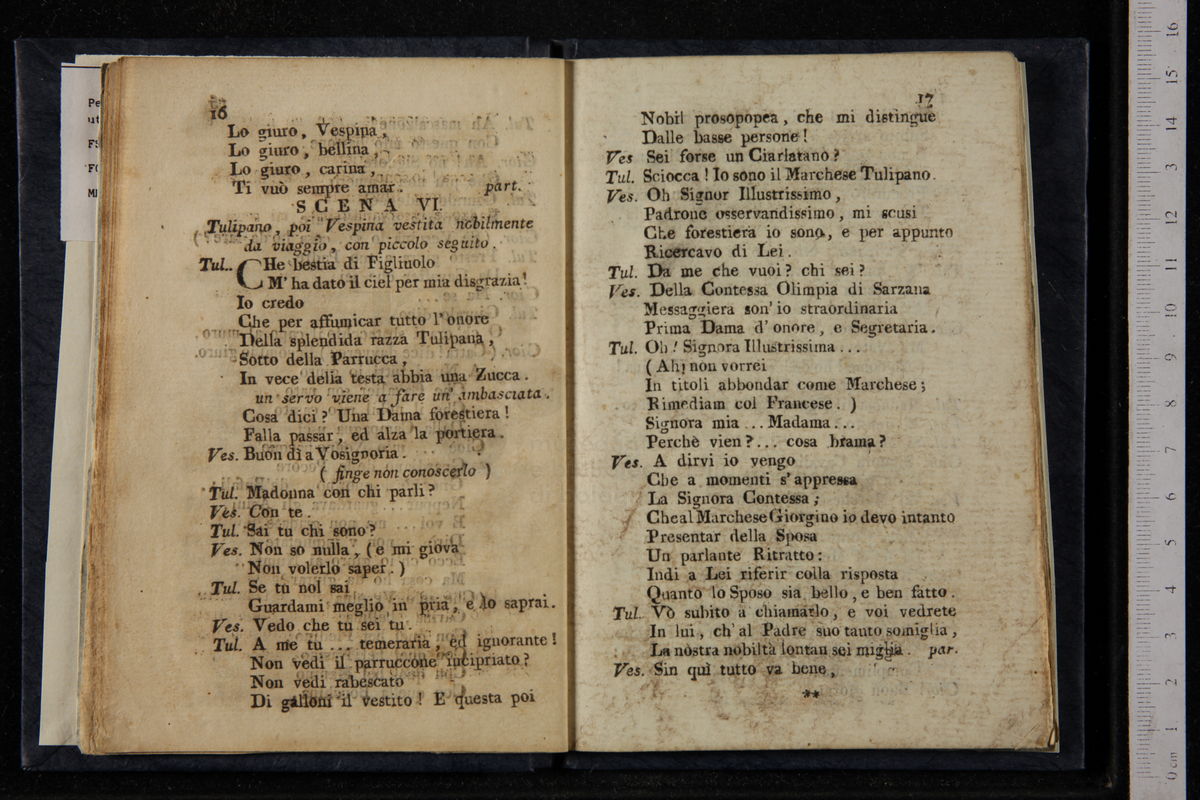 16
Lo giuro, Vespina,
Lo giuro, bellina,
Lo giuro, carina,
Ti vuò sempre amar. part.
SCENA VI.
Tulipano, poi Vespina vestita nobilmente
da viaggio, con piccolo seguito.
Tul. CHe bestia di Figliuolo
M' ha dato il ciel per mia disgrazia!
Io credo
Che per affumicar tutto l'onore
Della splendida razza Tulipana,
Sotto della Parrucca,
In vece della testa abbia una Zucca.
un servo viene a fare un' ambasciata.
Cosa dici? Una Dama forestiera!
Falla passar, ed alza la portiera.
Ves. Buon dì a Vosignoria.
( finge non conoscerlo )
Tul. Madonna con chi parli?
Ves. Con te.
Tul. Sai tu chi sono?
Ves. Non so nulla, (e mi giova
Non volerlo saper.)
Tul. Se tu nol sai
Guardami meglio in pria, e lo saprai.
Ves. Vedo che tu sei tu.
Tul. A me tu ... temeraria, ed ignorante!
Non vedi il parruccone incipriato?
Non vedi rabescato
Di galloni il vestito! E questa poi
17
Nobil prosopopea, che mi distingue
Dalle basse persone!
Ves Sei forse un Ciarlatano?
Tul. Sciocca! Io sono il Marchese Tulipano.
Ves. Oh Signor Illustrissimo,
Padrone osservandissimo, mi scusi
Che forestiera io sono, e per appunto
Ricercavo di Lei.
Tul. Da me che vuoi? chi sei?
Ves. Della Contessa Olimpia di Sarzana
Messaggiera son' io straordinaria
Prima Dama d' onore, e Segretaria.
Tul. Oh! Signora Illustrissima ...
( Ah! non vorrei
In titoli abbondar come Marchese;
Rimediam col Francese. )
Signora mia ... Madama ...
Perchè vien?... cosa brama?
Ves. A dirvi io vengo
Che a momenti s' appressa
La Signora Contessa;
Che al Marchese Giorgino io devo intanto
Presentar della Sposa
Un parlante Ritratto:
Indi a Lei riferir colla risposta
Quanto lo Sposo sia bello, e ben fatto.
Tul. Vò subito a chiamarlo, e voi vedrete
In lui, ch' al Padre suo tanto somiglia,
La nostra nobiltà lontan sei miglia. par.
Ves. Sin quì tutto va bene,
**